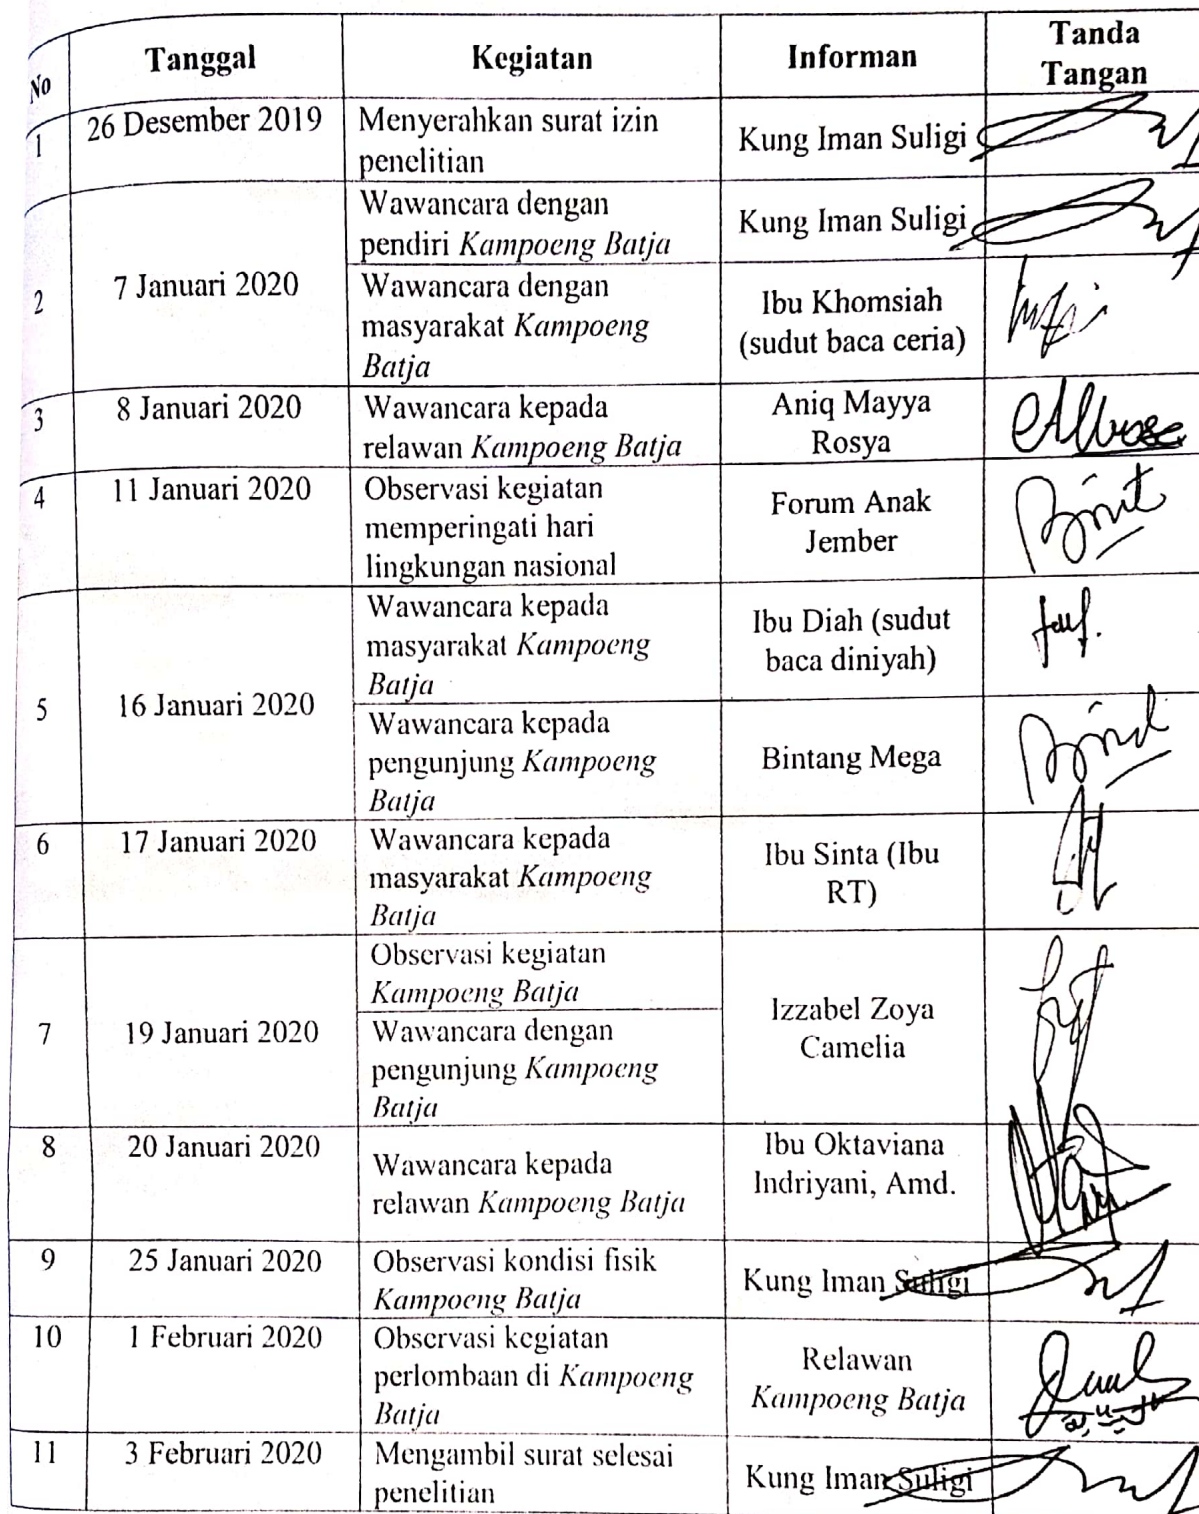 No Tanggal Kegiatan Informan Tanda
Tangan
1 26 Desember 2019 Menyerahkan surat izin
penelitian
Kung Iman Suligi
2 7 Januari 2020
Wawancara dengan
pendiri Kampoeng Batja
Kung Iman Suligi
Wawancara dengan
masyarakat Kampoeng
Batja
Ibu Khomsiah
(sudut baca ceria)
3 8 Januari 2020 Wawancara kepada
relawan Kampoeng Batja
Aniq Mayya
Rosya
4 11 Januari 2020 Observasi kegiatan
memperingati hari
lingkungan nasional
Forum Anak
Jember
5 16 Januari 2020
Wawancara kepada
masyarakat Kampoeng
Batja
Ibu Diah (sudut
baca diniyah)
Wawancara kepada
pengunjung Kampoeng
Batja
Bintang Mega
6 17 Januari 2020 Wawancara kepada
masyarakat Kampoeng
Batja
Ibu Sinta (Ibu
RT)
7 19 Januari 2020
Observasi kegiatan
Kampoeng Batja
Wawancara dengan
pengunjung Kampoeng
Batja
Izzabel Zoya
Camelia
8 20 Januari 2020
Wawancara kepada
relawan Kampoeng Batja
Ibu Oktaviana
Indriyani, Amd.
9 25 Januari 2020 Observasi kondisi fisik
Kampoeng Batja
Kung Iman Suligi
10 1 Februari 2020 Observasi kegiatan
perlombaan di Kampoeng
Batja
Relawan
Kampoeng Batja
11 3 Februari 2020 Mengambil surat selesai
penelitian
Kung Iman Suligi